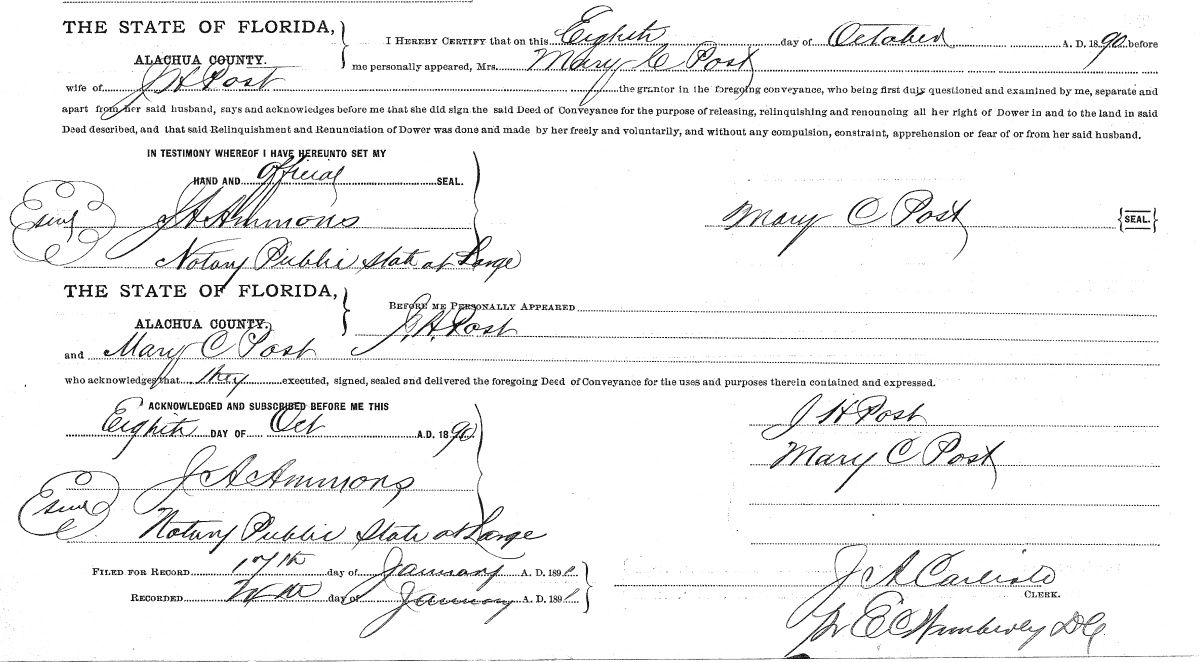 THE STATE OF FLORIDA,
ALACHUA COUNTY.
I HEREBY CERTIFY that on this Eighth day of October A. D. 1890 before
me personally appeared, Mrs. Mary C Post
wife of J H Post the grantor in the foregoing conveyance, who being first duly questioned and examined by me, separate and
apart from her said husband, says and acknowledges before me that she did sign the said Deed of Conveyance for the purpose of releasing, relinquishing and renouncing all her right of Dower in and to the land in said
Deed described, and that said Relinquishment and Renunciation of Dower was done and made by her freely and voluntarily, and without any compulsion, constraint, apprehension or fear of or from her said husband.
IN TESTIMONY WHEREOF I HAVE HEREUNTO SET MY
HAND AND official SEAL.
J A Ammons
Mary C Post {SEAL.}
Notary Public State at Large
THE STATE OF FLORIDA,
ALACHUA COUNTY.
BEFORE ME PERSONALLY APPEARED
J. H. Post
and Mary C Post
who acknowledges that they executed, signed, sealed and delivered the foregoing Deed of Conveyance for the uses and purposes therein contained and expressed.
ACKNOWLEDGED AND SUBSCRIBED BEFORE ME THIS
Eighth DAY OF Oct A.D. 1890
J H Post
Mary C Post
J A Ammons
Notary Public State at Large
FILED FOR RECORD 17th day of January A. D. 1891
RECORDED day of January A. D. 1891
J A Carlisle
CLERK.
E C Wimberley D C